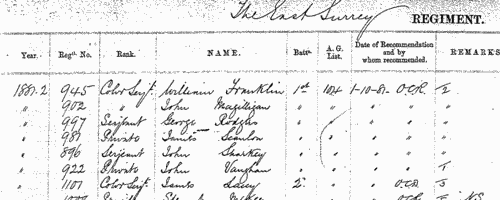 The East Surrey REGIMENT.
Year. Regtl. No. Rank. NAME. Battn. A. G. List. Date of Recommendation and by whom recommended. REMARKS
1881-2 945 Color Serjt. William Franklin 1st 104 1-10-81- O.C.R. 1/2
" 902 " John Magilligan " " " " "
" 997 Serjeant George Rodgers " " " " "
" 987 Private James Scanlon " " " " "
" 896 Serjeant John Sharkey " " " " "
" 922 Private John Vaughan " " " " 1
" 1101 Color Serjt. James Lacey 2 " " O.C.R.